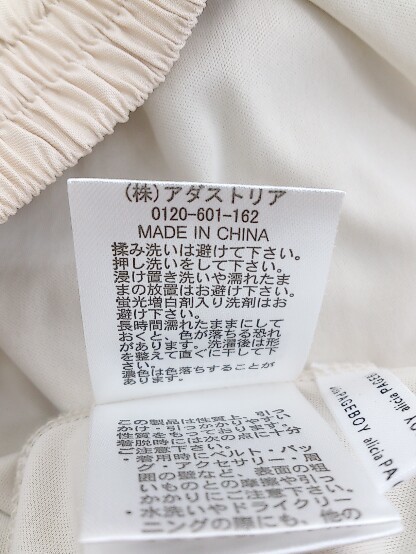 (株)アダストリア
0120-601-162
MADE IN CHINA
揉み洗いは避けて下さい。
押し洗いをして下さい。
浸け置き洗いや濡れたま
まの放置はお避け下さい。
蛍光増白剤入り洗剤はお
避け下さい。
長時間濡れたままにして
おくと、色が落ちる恐れ
があります。洗濯後は形
を整えて直ぐに干して下
さい。
濃色は色落ちすることが
あります。
この製品は性質上、引っ
かけ・引っかかりやすい
性質をもっております。
着脱時には次の点に十分
ご注意下さい。
・着用時にベルト・バッ
グ・アクセサリー・周
囲の壁など、表面の粗
いものとの摩擦や引っ
かかりにご注意下さい。
・水洗いやドライクリー
ニングの際にも、他の
alicia PAGEBOY
PAGEBOY alicia PA